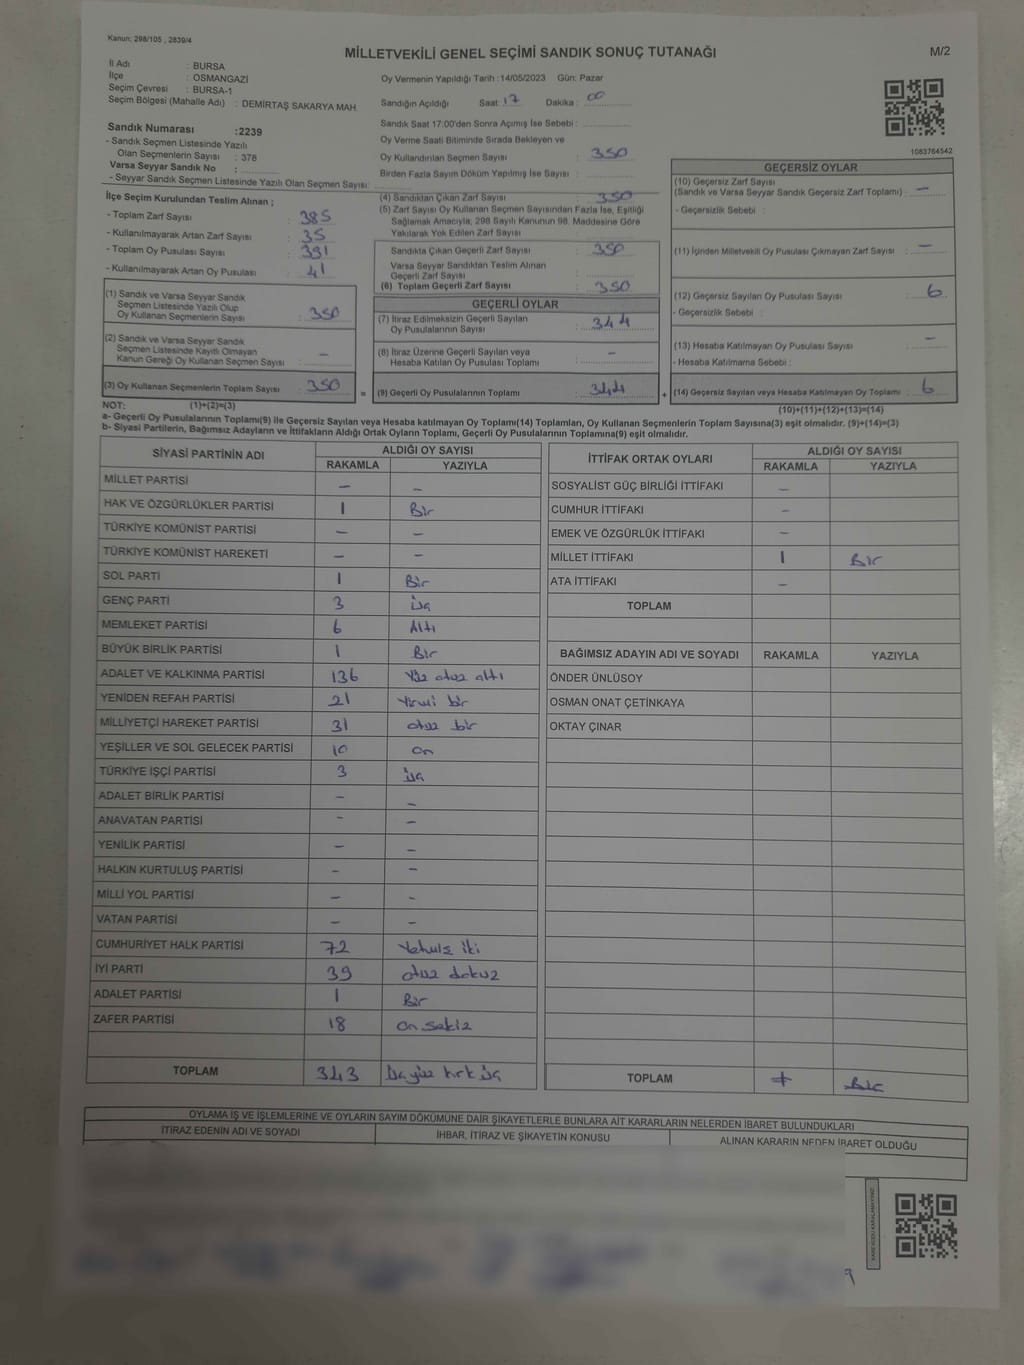 Kanun: 298/105 , 2839/4
MİLLETVEKİLİ GENEL SEÇİMİ SANDIK SONUÇ TUTANAĞI
M/2
İl Adı : BURSA
İlçe : OSMANGAZİ
Seçim Çevresi : BURSA-1
Seçim Bölgesi (Mahalle Adı) : DEMİRTAŞ SAKARYA MAH.
Oy Vermenin Yapıldığı Tarih :14/05/2023 Gün: Pazar
Sandığın Açıldığı Saat: 17 Dakika : 00
Sandık Saat 17:00'den Sonra Açımış İse Sebebi :
Oy Verme Saati Bitiminde Sırada Bekleyen ve
Oy Kullandırılan Seçmen Sayısı : 350
Birden Fazla Sayım Döküm Yapılmış İse Sayısı :
1083764542
Sandık Numarası :2239
- Sandık Seçmen Listesinde Yazılı
Olan Seçmenlerin Sayısı : 378
Varsa Seyyar Sandık No :
- Seyyar Sandık Seçmen Listesinde Yazılı Olan Seçmen Sayısı:
İlçe Seçim Kurulundan Teslim Alınan ;
- Toplam Zarf Sayısı : 385
- Kullanılmayarak Artan Zarf Sayısı : 35
- Toplam Oy Pusulası Sayısı : 391
- Kullanılmayarak Artan Oy Pusulası : 41
(1) Sandık ve Varsa Seyyar Sandık
Seçmen Listesinde Yazılı Olup
Oy Kullanan Seçmenlerin Sayısı : 350
(2) Sandık ve Varsa Seyyar Sandık
Seçmen Listesinde Kayıtlı Olmayan
Kanun Gereği Oy Kullanan Seçmen Sayısı : –
(3) Oy Kullanan Seçmenlerin Toplam Sayısı : 350
(4) Sandıktan Çıkan Zarf Sayısı : 350
(5) Zarf Sayısı Oy Kullanan Seçmen Sayısından Fazla İse, Eşitliği
Sağlamak Amacıyla, 298 Sayılı Kanunun 98. Maddesine Göre
Yakılarak Yok Edilen Zarf Sayısı :
Sandıkta Çıkan Geçerli Zarf Sayısı : 350
Varsa Seyyar Sandıktan Teslim Alınan
Geçerli Zarf Sayısı :
(6) Toplam Geçerli Zarf Sayısı : 350
GEÇERLİ OYLAR
(7) İtiraz Edilmeksizin Geçerli Sayılan
Oy Pusulalarının Sayısı : 344
(8) İtiraz Üzerine Geçerli Sayılan veya
Hesaba Katılan Oy Pusulası Toplamı : –
= (9) Geçerli Oy Pusulalarının Toplamı : 344
GEÇERSİZ OYLAR
(10) Geçersiz Zarf Sayısı
(Sandık ve Varsa Seyyar Sandık Geçersiz Zarf Toplamı) : –
- Geçersizlik Sebebi :
(11) İçinden Milletvekili Oy Pusulası Çıkmayan Zarf Sayısı : –
(12) Geçersiz Sayılan Oy Pusulası Sayısı : 6
- Geçersizlik Sebebi :
(13) Hesaba Katılmayan Oy Pusulası Sayısı : –
- Hesaba Katılmama Sebebi :
+ (14) Geçersiz Sayılan veya Hesaba Katılmayan Oy Toplamı : 6
NOT: (1)+(2)=(3)
(10)+(11)+(12)+(13)=(14)
a- Geçerli Oy Pusulalarının Toplamı(9) ile Geçersiz Sayılan veya Hesaba katılmayan Oy Toplamı(14) Toplamları, Oy Kullanan Seçmenlerin Toplam Sayısına(3) eşit olmalıdır. (9)+(14)=(3)
b- Siyasi Partilerin, Bağımsız Adayların ve İttifakların Aldığı Ortak Oyların Toplamı, Geçerli Oy Pusulalarının Toplamına(9) eşit olmalıdır.
SİYASİ PARTİNİN ADI ALDIĞI OY SAYISI
RAKAMLA YAZIYLA
MİLLET PARTİSİ – –
HAK VE ÖZGÜRLÜKLER PARTİSİ 1 Bir
TÜRKİYE KOMÜNİST PARTİSİ – –
TÜRKİYE KOMÜNİST HAREKETİ – –
SOL PARTİ 1 Bir
GENÇ PARTİ 3 üç
MEMLEKET PARTİSİ 6 Altı
BÜYÜK BİRLİK PARTİSİ 1 Bir
ADALET VE KALKINMA PARTİSİ 136 Yüz otuz altı
YENİDEN REFAH PARTİSİ 21 Yirmi bir
MİLLİYETÇİ HAREKET PARTİSİ 31 otuz bir
YEŞİLLER VE SOL GELECEK PARTİSİ 10 on
TÜRKİYE İŞÇİ PARTİSİ 3 üç
ADALET BİRLİK PARTİSİ – –
ANAVATAN PARTİSİ – –
YENİLİK PARTİSİ – –
HALKIN KURTULUŞ PARTİSİ – –
MİLLİ YOL PARTİSİ – –
VATAN PARTİSİ – –
CUMHURİYET HALK PARTİSİ 72 Yetmiş iki
İYİ PARTİ 39 otuz dokuz
ADALET PARTİSİ 1 Bir
ZAFER PARTİSİ 18 on sekiz
TOPLAM 343 Üçyüz kırk üç
İTTİFAK ORTAK OYLARI ALDIĞI OY SAYISI
RAKAMLA YAZIYLA
SOSYALİST GÜÇ BİRLİĞİ İTTİFAKI –
CUMHUR İTTİFAKI –
EMEK VE ÖZGÜRLÜK İTTİFAKI –
MİLLET İTTİFAKI 1 Bir
ATA İTTİFAKI –
TOPLAM
BAĞIMSIZ ADAYIN ADI VE SOYADI RAKAMLA YAZIYLA
ÖNDER ÜNLÜSOY
OSMAN ONAT ÇETİNKAYA
OKTAY ÇINAR
TOPLAM Bir
OYLAMA İŞ VE İŞLEMLERİNE VE OYLARIN SAYIM DÖKÜMÜNE DAİR ŞİKAYETLERLE BUNLARA AİT KARARLARIN NELERDEN İBARET BULUNDUKLARI
İTİRAZ EDENİN ADI VE SOYADI
İHBAR, İTİRAZ VE ŞİKAYETİN KONUSU
ALINAN KARARIN NEDEN İBARET OLDUĞU